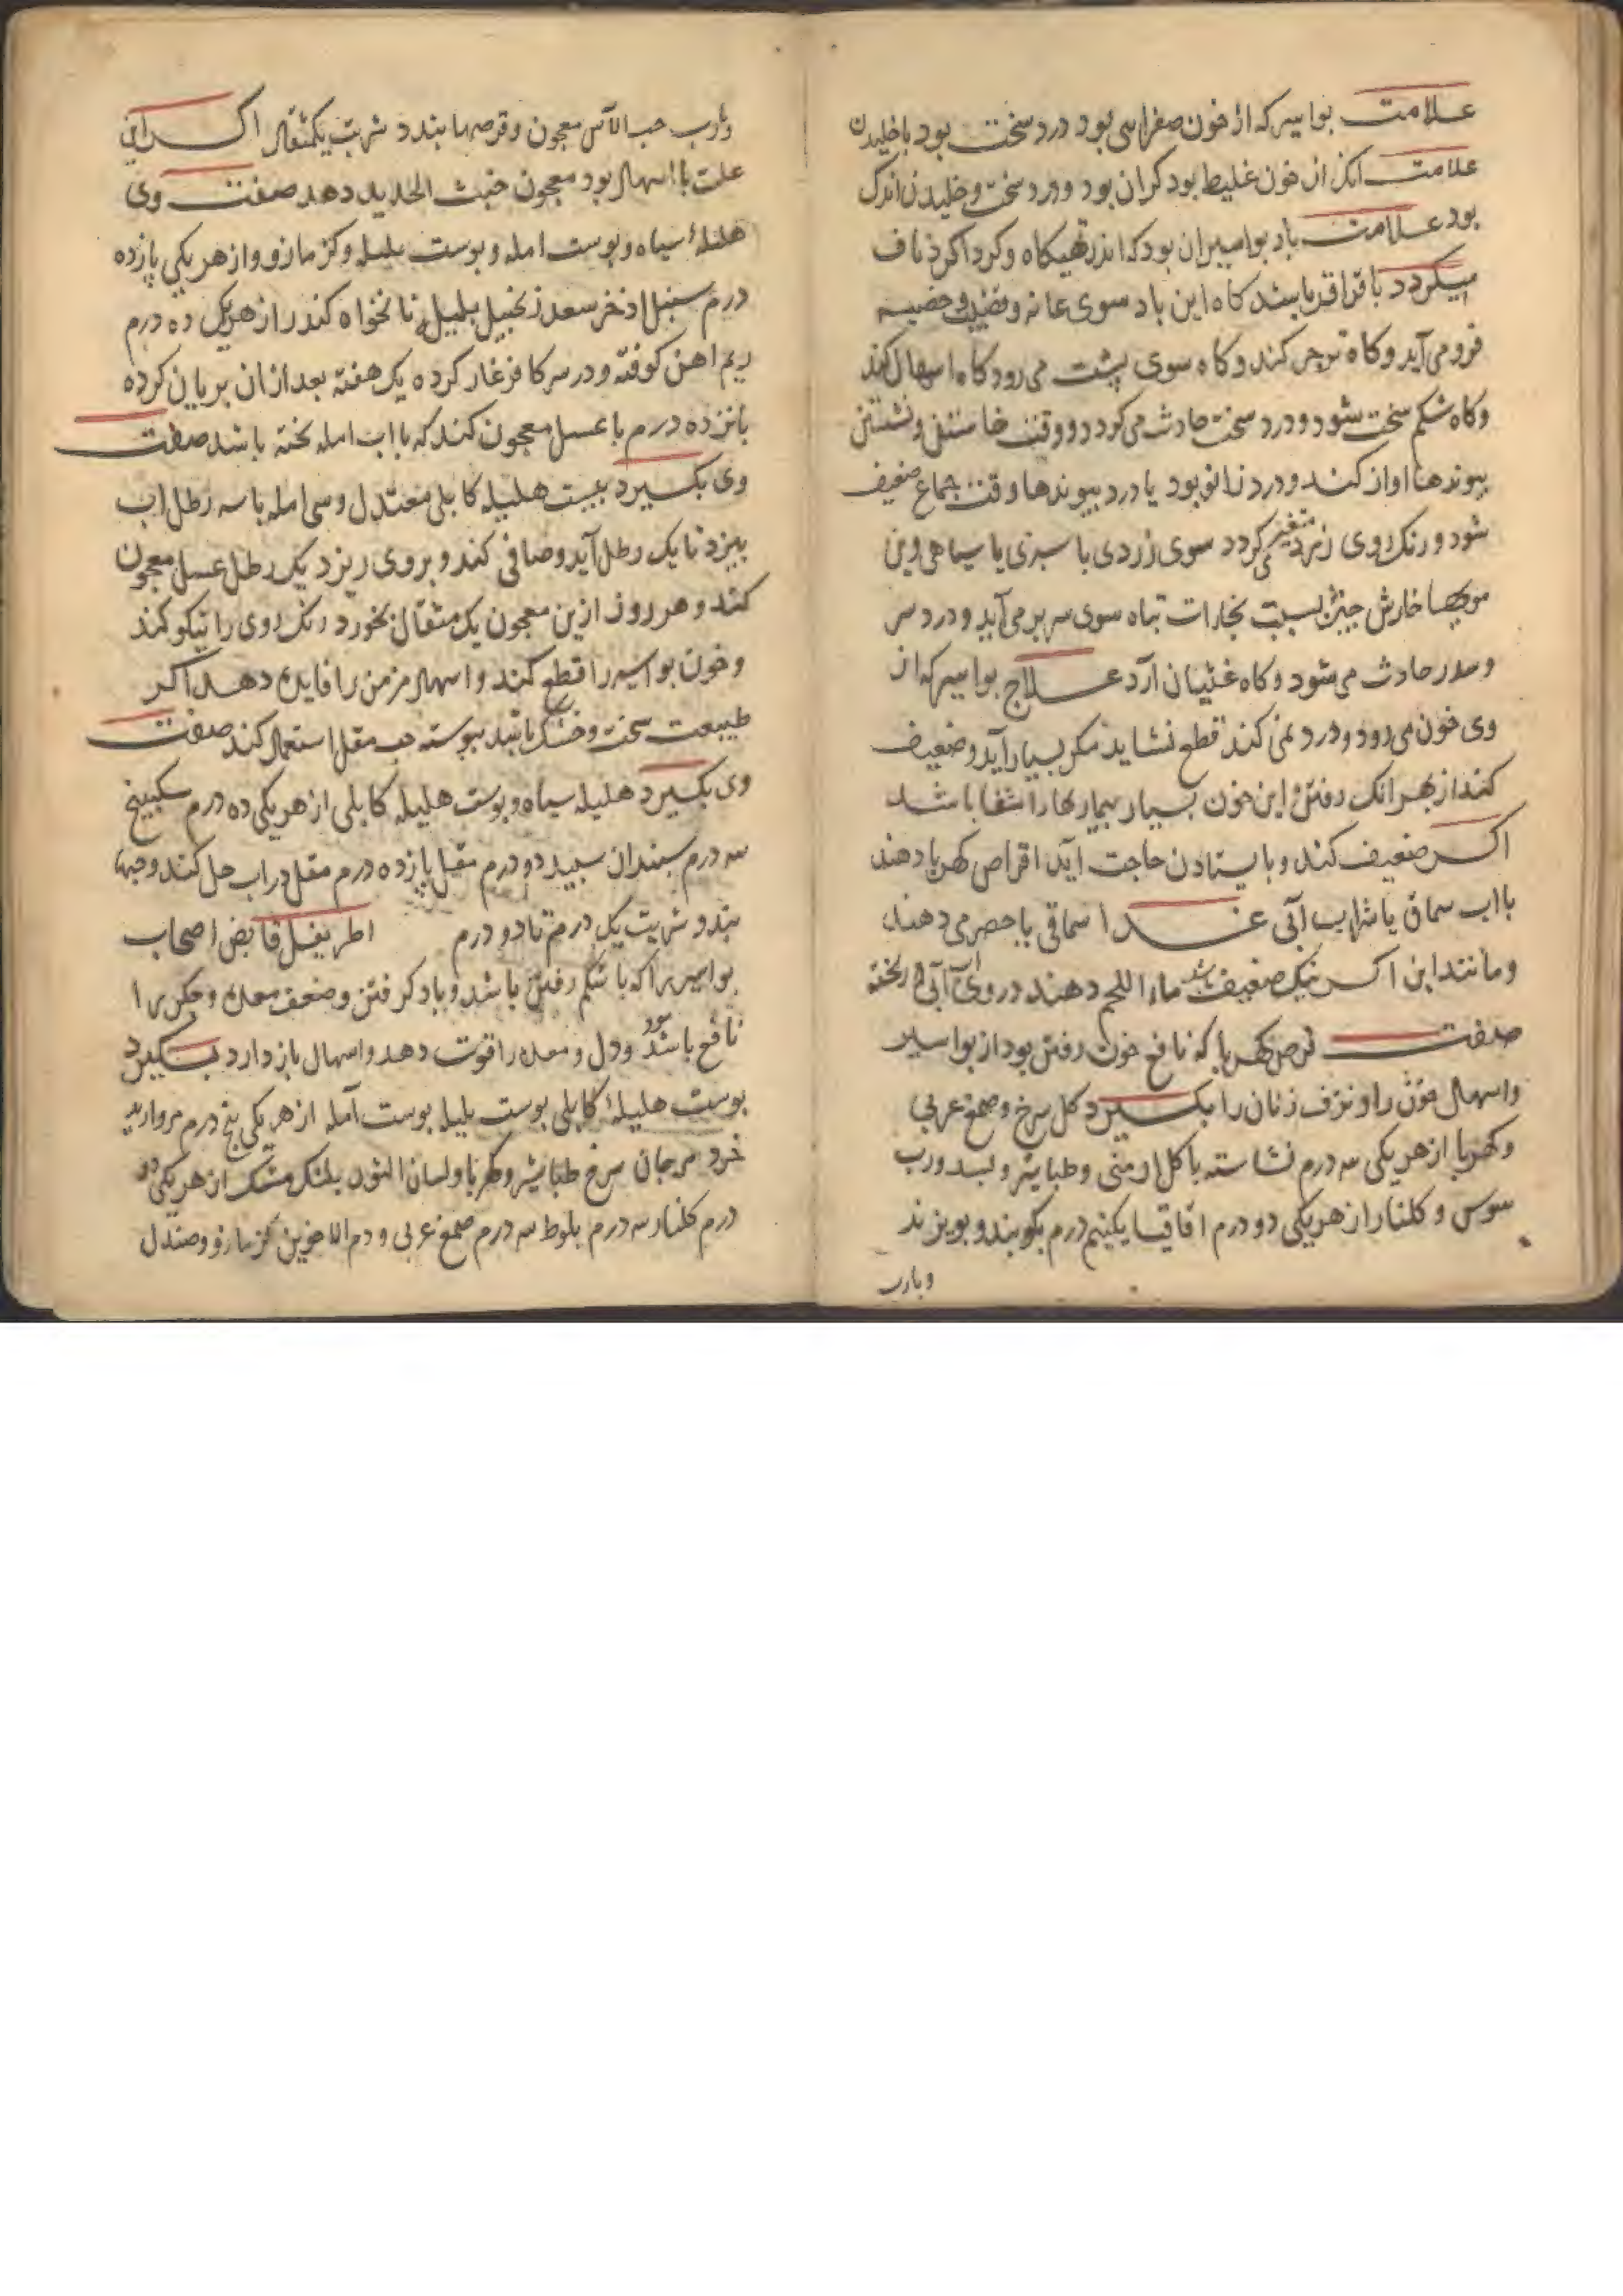 علامت بواسیر که از خون صفراسی بود درد سخت بود با خلیدن
علامت انک از خون غلیظ بود کران بود و درد سخت و خلیدن اندک
بود علامت باد بواسیر ان بود که اندر تهیکاه و کرد اکرد ناف
میکردد با قراقر باشد کاه این باد سوی عانه و قضیب و خصیه
فرو می آید و کاه کند و کاه سوی پشت می رود کاه اسهال کند
و کاه شکم سخت شود و درد سخت حادث می کردد و وقت خاستن و نشستن
پیوندها اواز کند و درد زانو بود یا درد پیوندها وقت جماع ضعیف
شود و رنک روی زرد متغیر می کردد سوی زردی یا سبزی یا سیاهی و بن
مویها خارش بسبب بخارات تباه سوی سر بر می آید و درد سر
و سدر حادث می شود و کاه غثیان آرد علاج بواسیر که از
وی خون می رود و درد نمی کند قطع نشاید مکر بسیار آید و ضعیف
کند از بهر انک رفتن این خون بسیار بیماریها را شفا باشد
اکر ضعیف کند و با یستادن حاجت اید اقراص کهربا دهند
با اب سماق یا شراب آبی غدا سماقی یا حصرمی دهند
و مانند این اکر نیک ضعیف باشد ماء اللحم دهند در وی آب آبی ریخته
صفت قرص کهربا که نافع خون رفتن بود از بواسیر
و اسهال خون را و نزف زنان را بکیرد کل سرخ و صمغ عربی
و کهربا از هر یکی سه درم نشاسته با کل ارمنی و طباشیر و لبسد و رب
سوس و کلنار از هر یکی دو درم اقاقیا یکنیم درم بکوبند و بویزند
وبارب
وبارب حب الآس معجون و قرصها بندد شربت یکمثقال اکر این
علت با اسهال بود معجون خبث الحدید دهد صفت وی
هلیلهٔ سیاه و پوست امله و پوست بلیله و کزمازو و از هر یکی پازده
درم سنبل اذخر سعد زنجبیل پلپل نانخواه کندر از هر یک ده درم
ریم اهن کوفته و در سرکا فرغار کرده یک هفته بعد از ان بریان کرده
پانزده درم با عسل معجون کند که با اب امله پخته باشد صفت
وی بکیرد بیست هلیله کابلی معتدل و سی امله با سه رطل اب
بپزد تا یک رطل آید و صافی کند و بر وی ریزد یک رطل عسل معجون
کند و هر روز ازین معجون یک مثقال بخورد رنک روی را نیکو کند
و خون بواسیر را قطع کند و اسهال مزمن را فایده دهد اکر
طبیعت سخت و خشک باشد پیوسته حب مقل استعمال کند صفت
وی بکیرد هلیله سیاه و پوست هلیله کابلی از هر یکی ده درم سکبینج
سه درم سبندان سپید دو درم مقل پازده درم مقل در اب حل کند و حبها
بندد و شربت یک درم تا دو درم اطریفل قابض اصحاب
بواسیر را که با شکم رفتن باشد و باد کرفتن و ضعف معده و جکر را
نافع باشد سود و دل و معده را قوت دهد و اسهال باز دارد بکیرد
پوست هلیلهٔ کابلی پوست بلیله پوست آمله از هر یکی پنج درم مروارید
خرد مرجان سرخ طباشیر و کهربا و لسان الثور پلنک مشک از هر یکی دو
درم کلنار سه درم بلوط سه درم صمغ عربی و دم الاخوین کزمازو و صندل